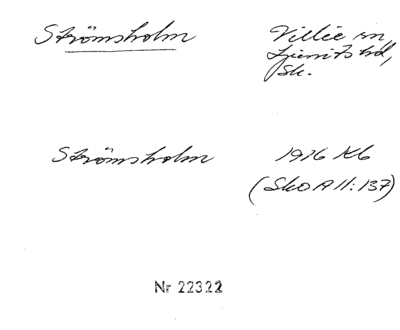 Strömsholm
Villie sn,
Ljunits hd,
Sk.
Strömsholm
1926 Kb
(SkO A II:137)
Nr 22322